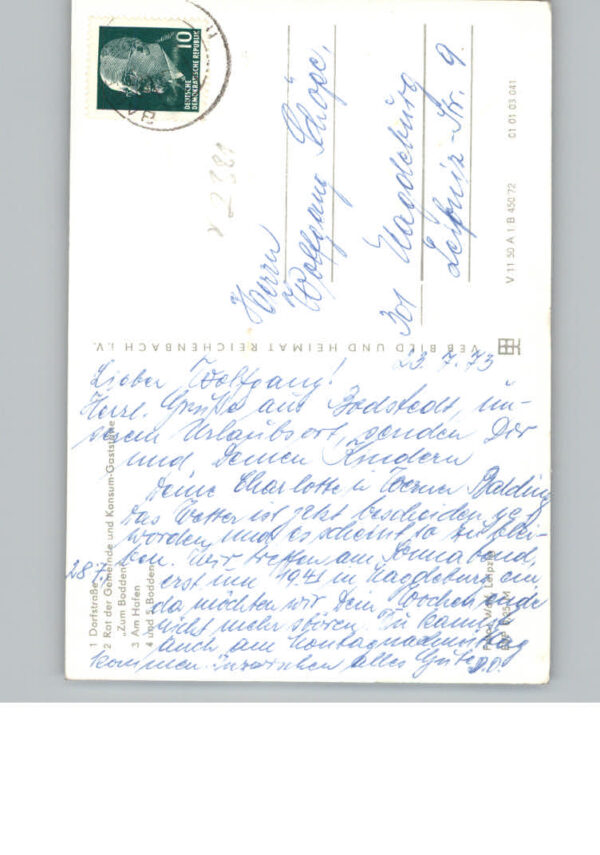 10
DEUTSCHE
DEMOKRATISCHE REPUBLIK
Herrn
Wolfgang Schöpe,
301 Magdeburg
Leibniz-Str. 9.
V 11 50 A 1 B 450/72 01 01 03 041
VEB BILD UND HEIMAT REICHENBACH i.V.
23.7.73
Lieber Wolfgang!
Herzl. Grüße aus Bodstedt, un-
serem Urlaubsort, senden Dir
und Deinen Kindern
Deine Charlotte u. Werner
Das Wetter ist jetzt bescheiden ge-
worden, und es scheint so zu blei-
ben. Wir treffen am Sonnabend,
28.7. erst um 1941 in Magdeburg ein,
da möchten wir Dein Wochenende
nicht mehr stören. Du kannst
auch am Montagnachmittag
kommen. Inzwischen alles Gute
D.O.
1 Dorfstraße
2 Rat der Gemeinde und Konsum-Gaststätte
„Zum Bodden"
3 Am Hafen
4 und 5 Bodden
Leipzig